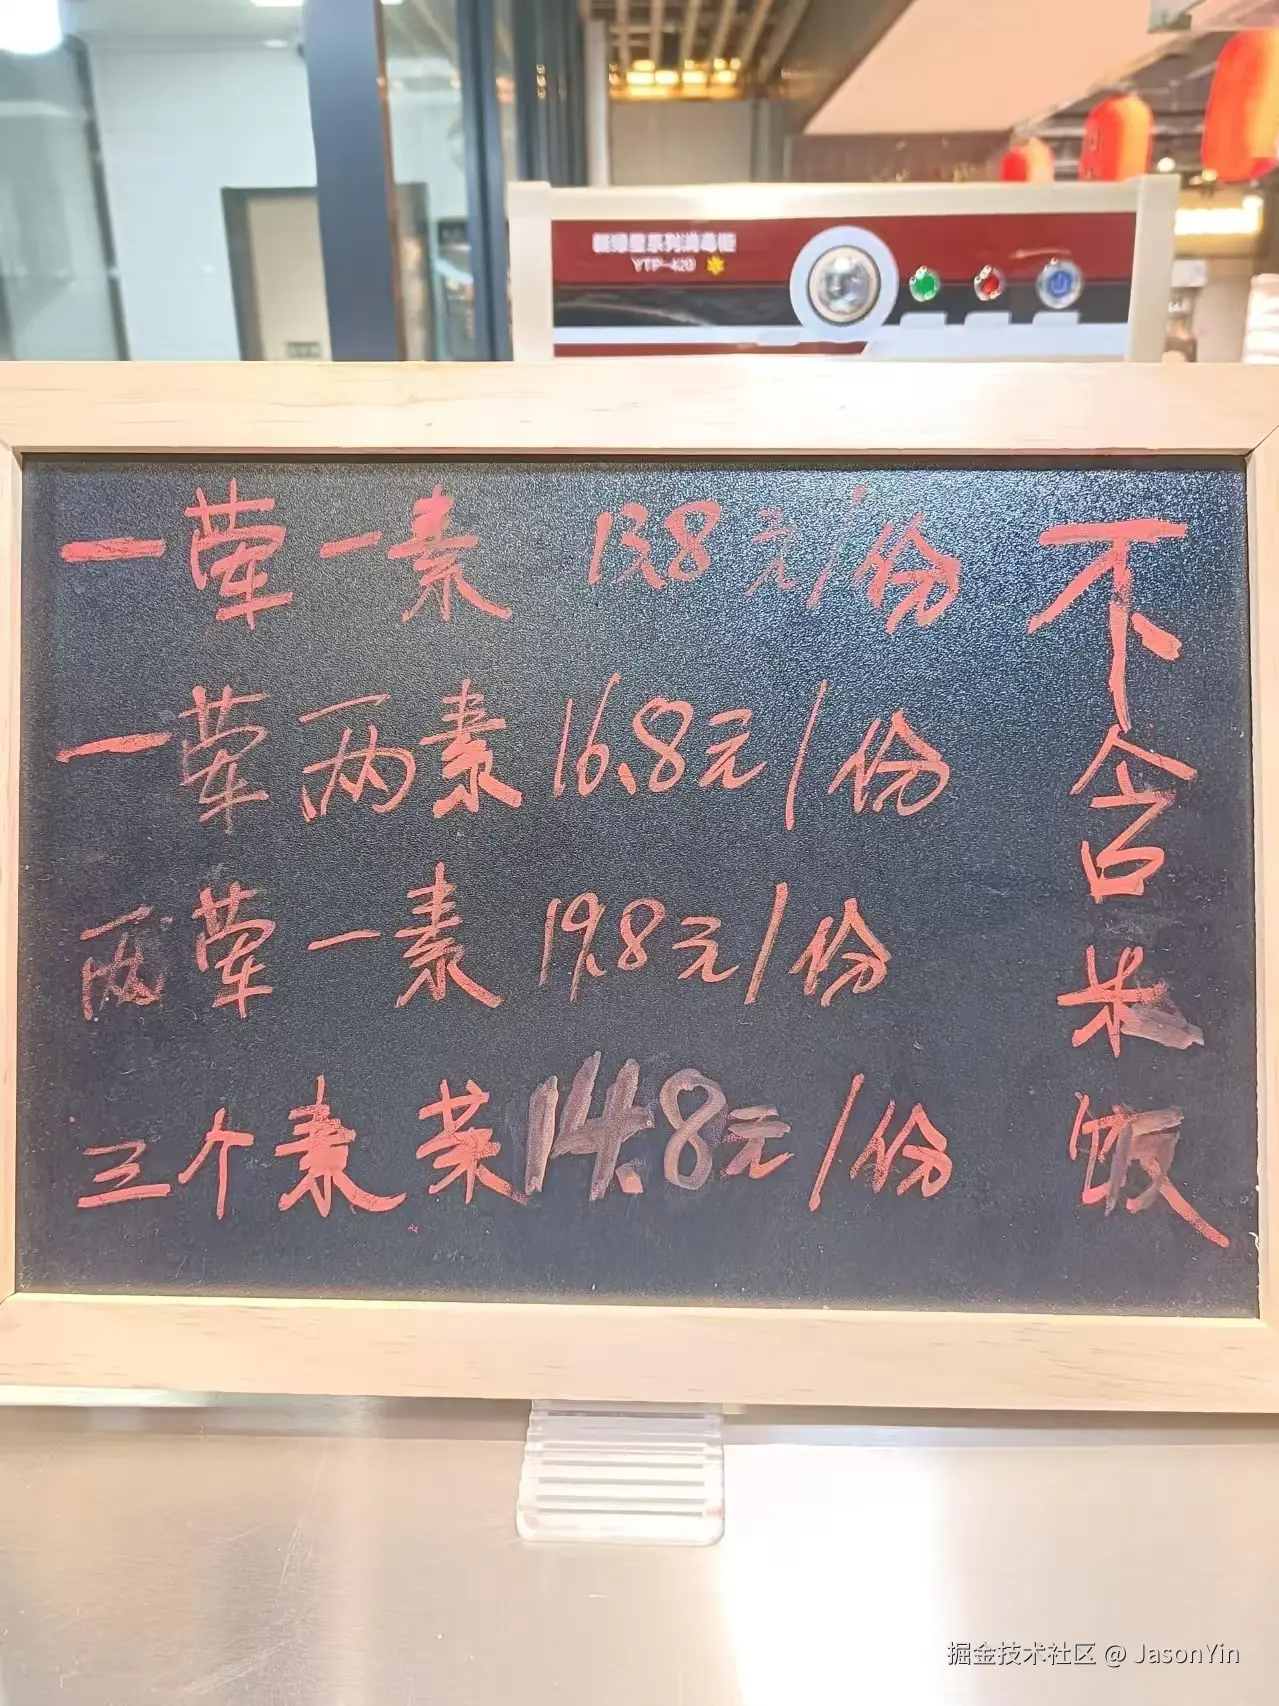 系列消毒柜
YTP-420
一荤一素 13.8元/份
一荤两素 16.8元/份
两荤一素 19.8元/份
三个素菜 14.8元/份
不含米饭
掘金技术社区 @ JasonYin